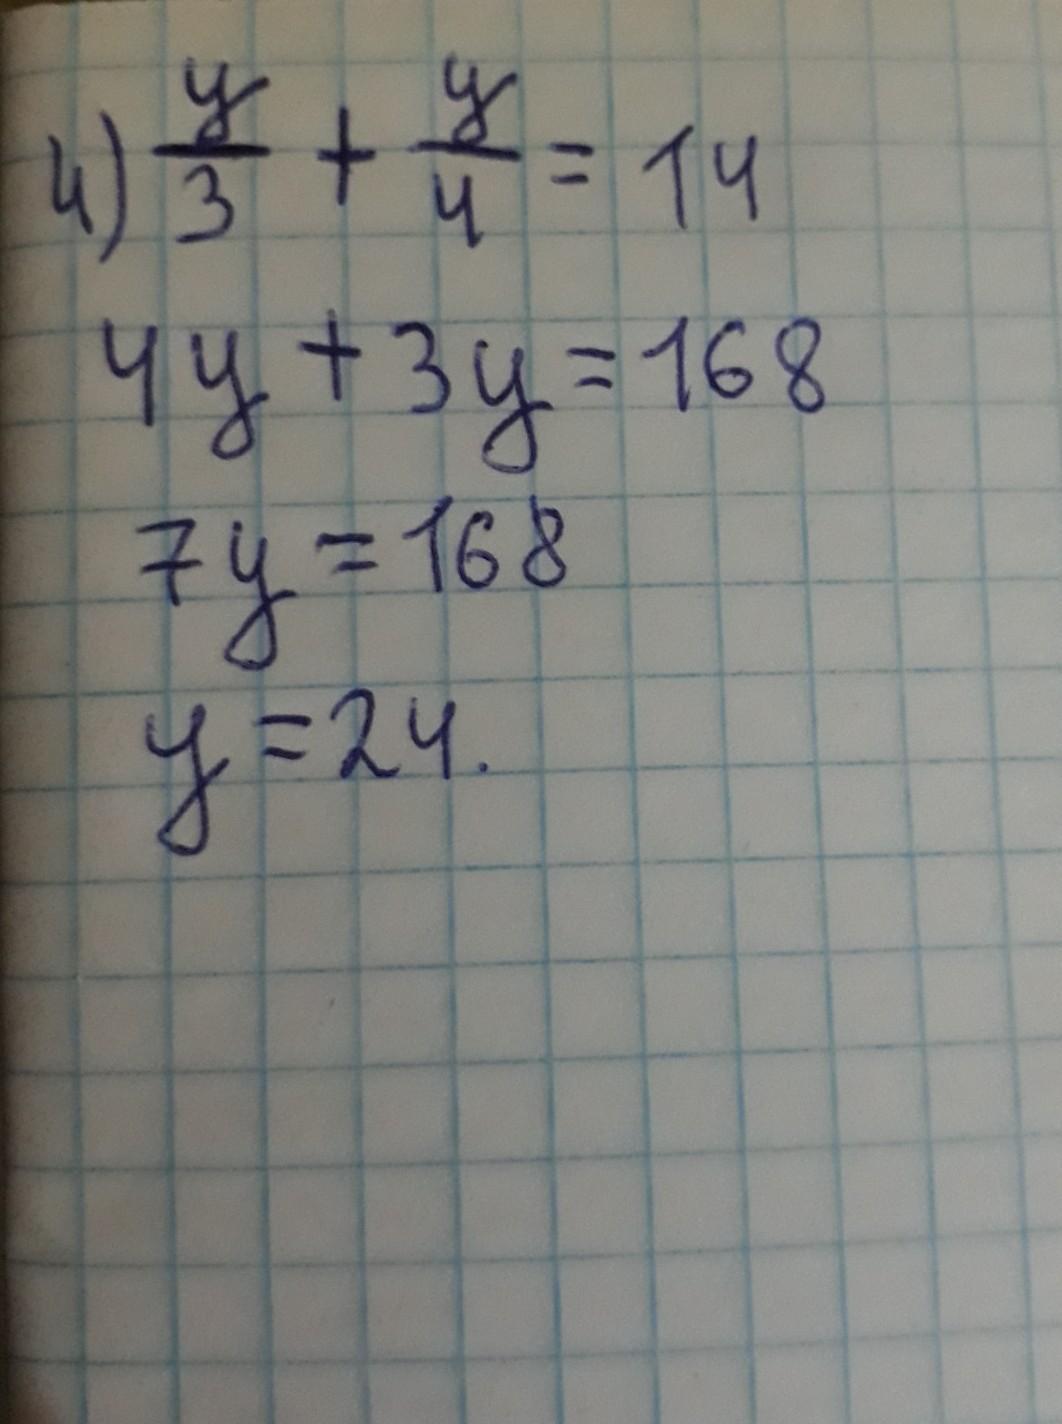 4) y/3 + y/4 = 14
4y + 3y = 168
7y = 168
y = 24.